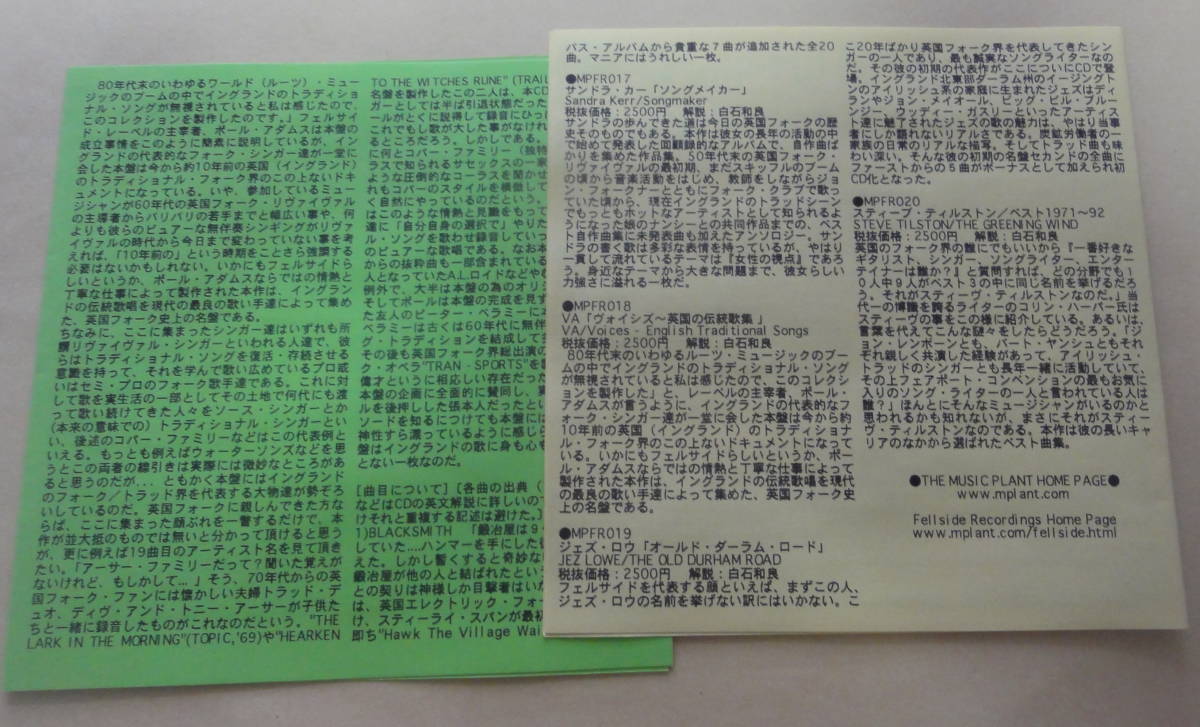 80年代末のいわゆるワールド（ルーツ）・ミュー
ジックのブームの中でイングランドのトラディショ
ナル・ソングが無視されていると私は感じたので、
このコレクションを製作したのです。」フェルサイ
ド・レーベルの主宰者、ポール・アダムスは本盤の
成立事情をこのように簡素に説明しているが、イン
グランドの代表的なフォーク・シンガー達が一堂に
会した本盤は今から約10年前の英国（イングランド）
のトラディショナル・フォーク界のこの上ないドキ
ュメントになっている。いや、参加しているミュー
ジシャンが60年代の英国フォーク・リヴァイヴァル
の主導者からバリバリの若手までと幅広い事や、何
よりも彼らのピュアーな無伴奏シンギングがリヴァ
イヴァルの時代から今日まで変わっていない事を考
えれば、「10年前の」という時期をことさら強調する
必要はないかもしれない。いかにもフェルサイドら
しいというか、ポール・アダムスならではの情熱と
丁寧な仕事によって製作された本作は、イングラン
ドの伝統歌唱を現代の最良の歌い手達によって集め
た、英国フォーク史上の名盤である。
ちなみに、ここに集まったシンガー達はいずれも所
謂リヴァイヴァル・シンガーといわれる人達で、彼
らはトラディショナル・ソングを復活・存続させる
意識を持って、それを学んで歌い広めているプロ或
いはセミ・プロのフォーク歌手達である。これに対
して歌を実生活の一部としてその土地で何代にも渡
って歌い続けてきた人々をソース・シンガーとか
(本来の意味での）トラディショナル・シンガーとい
い、後述のコパー・ファミリーなどはこの代表例と
いえる。もっとも例えばウォーターソンズなどを思
うとこの両者の線引きは実際には微妙なところがあ
ると思うのだが... ともかく本盤にはイングランド
のフォーク/トラッド界を代表する大物達が勢ぞろ
いしているのだ。英国フォークに親しんできた方な
らば、ここに集まった顔ぶれを一瞥するだけで、本
作が並大抵のものでは無いと分かって頂けると思う
が、更に例えば19曲目のアーティスト名を見て頂き
たい。「アーサー・ファミリーだって？聞いた覚えが
ないけれど、もしかして...」そう、70年代からの英
国フォーク・ファンには懐かしい夫婦トラッド・デ
ュオ、ディヴ・アンド・トニー・アーサーが子供た
ちと一緒に録音したものがこれなのだという。"THE
LARK IN THE MORNING"(TOPIC,'69)や"HEARKEN
TO THE WITCHES RUNE" (TRAIL
名盤を製作したこの二人は、本CD
ガーとしては半ば引退状態だった
ールがとくに説得して録音にひっ
これでもし歌が大した事がなけれ
るところだろう。しかしである。
に何とコパー・ファミリー（独特
ラスで知られるサセックスの一家
ような圧倒的なコーラスを聞かせ
れもコパーのスタイルを模倣して
く自然にやっているのだという。
はこのような情熱と見識をもって
達に「自分自身の選択で」やりた
ル・ソングを歌わせ録音していっ
のピュアーな歌唱である。なお本
からの抜粋曲も一部含まれている
となっていたA.L.ロイドなどやむ
例外で、大半は本盤の為のオリジ
そしてポールは本盤の完成を見ず
た友人のピーター・ベラミーに本
ベラミーは古くは60年代に無伴
グ・トラディションを結成して
その後も英国フォーク界総出演の
ク・オペラ"TRAN - SPORTS"を
偉才というに相応しい存在だった
本盤の企画に全面的に賛同し、実
ルを後押しした張本人だったとい
ソードを知るにつけても本盤には
神性すら漂っているように感じる
盤はイングランドの歌に身も心も
とない一枚なのだ。
[曲目について] [各曲の出典（
などはCDの英文解説に詳しいので
けそれと重複する記述は避けた。]
1)BLACKSMITH 「鍛冶屋は９
していた....ハンマーを手にした
えた。しかし暫くすると奇妙な
鍛冶屋が他の人と結ばれたという
との契りは神様しか目撃者はいな
は、英国エレクトリック・フォー
け、スティーライ・スパンが最初
即ち"Hawk The Village Wai
パス・アルバムから貴重な７曲が追加された全20
曲。マニアにはうれしい一枚。
●MPFR017
サンドラ・カー「ソングメイカー」
Sandra Kerr/Songmaker
税抜価格：2500円　解説：白石和良
サンドラの歩んできた道は今日の英国フォークの歴
史そのものでもある。本作は彼女の長年の活動の中
で始めて発表した回顧録的なアルバムで、自作曲ば
かりを集めた作品集。50年代末の英国フォーク・
リヴァイヴァルの最初期、まだスキッフルのブーム
の頃から音楽活動をはじめ、教師をしながらジョ
ン・フォークナーとともにフォーク・クラブで歌っ
ていた頃から、現在イングランドのトラッドシーン
でもっともホットなアーティストとして知られるよ
うになった娘のナンシーとの共同作品までの、ベス
ト自作曲集に未発表曲も加えたアンソロジー。サン
ドラの書く歌は多彩な表情を持っているが、やはり
一貫して流れているテーマは『女性の視点』であろ
う。身近なテーマから大きな問題まで、彼女らしい
力強さに溢れる一枚だ。
●MPFR018
VA「ヴォイシズ～英国の伝統歌集」
VA/Voices - English Traditional Songs
税抜価格：2500円　解説：白石和良
80年代末のいわゆるルーツ・ミュージックのブー
ムの中でイングランドのトラディショナル・ソング
が無視されていると私は感じたので、このコレクシ
ョンを製作した」と、レーベルの主宰者、ポール・
アダムスが言うように、イングランドの代表的なフ
ォーク・シンガー達が一堂に会した本盤は今から約
10年前の英国（イングランド）のトラディショナ
ル・フォーク界のこの上ないドキュメントになって
いる。いかにもフェルサイドらしいというか、ポー
ル・アダムスならではの情熱と丁寧な仕事によって
製作された本作は、イングランドの伝統歌唱を現代
の最良の歌い手達によって集めた、英国フォーク史
上の名盤である。
●MPFR019
ジェズ・ロウ「オールド・ダーラム・ロード」
JEZ LOWE/THE OLD DURHAM ROAD
税抜価格：2500円　解説：白石和良
フェルサイドを代表する顔といえば、まずこの人、
ジェズ・ロウの名前を挙げない訳にはいかない。こ
こ20年ばかり英国フォーク界を代表してきたシン
ガーの一人であり、最も誠実なソングライターなの
だ。その彼の初期の代表作がここについにCDで登
場。イングランド北東部ダーラム州のイージングト
ンのアイリッシュ系の家庭に生まれたジェズはディ
ランやジョン・メイオール、ビッグ・ビル・ブルー
ンジー、ウッディ・ガスリーといったアーティス
ト達に魅了されたジェズの歌の魅力は、やはり当事
者にしか語れないリアルさである。炭鉱労働者の一
家族の日常のリアルな描写、そしてトラッド曲も味
わい深い。そんな彼の初期の名盤セカンドの全曲に
ファーストからの５曲がボーナスとして加えられ初
CD化となった。
●MPFR020
スティーブ・ティルストン/ベスト1971～92
STEVE TILSTON/THE GREENING WIND
税抜価格：2500円　解説：白石和良
英国のフォーク界の誰にでもいいから『一番好きな
ギタリスト、シンガー、ソングライター、エンター
テイナーは誰か？』と質問すれば、どの分野でも１
０人中９人がベスト３の中に同じ名前を挙げるだろ
う、それがスティーヴ・ティルストンなのだ。」当
代一の博識を誇るライターのコリン・ハーパー氏は
スティーヴの事をこの様に紹介している。あるいは、
言葉を代えてこんな謎々をしたらどうだろう。「ジ
ョン・レンボーンとも、バート・ヤンシュともそれ
ぞれ親しく共演した経験があって、アイリッシュ・
トラッドのシンガーとも長年一緒に活動していて、
その上フェアポート・コンベンションの最もお気に
入りのソング・ライターの一人と言われている人は
誰？」ほんとにそんなミュージシャンがいるのかと
思われるかも知れないが、まさにそれがスティー
ヴ・ティルストンなのである。本作は彼の長いキャ
リアのなかから選ばれたベスト曲集。
●THE MUSIC PLANT HOME PAGE●
www.mplant.com
Fellside Recordings Home Page
www.mplant.com/fellside.html